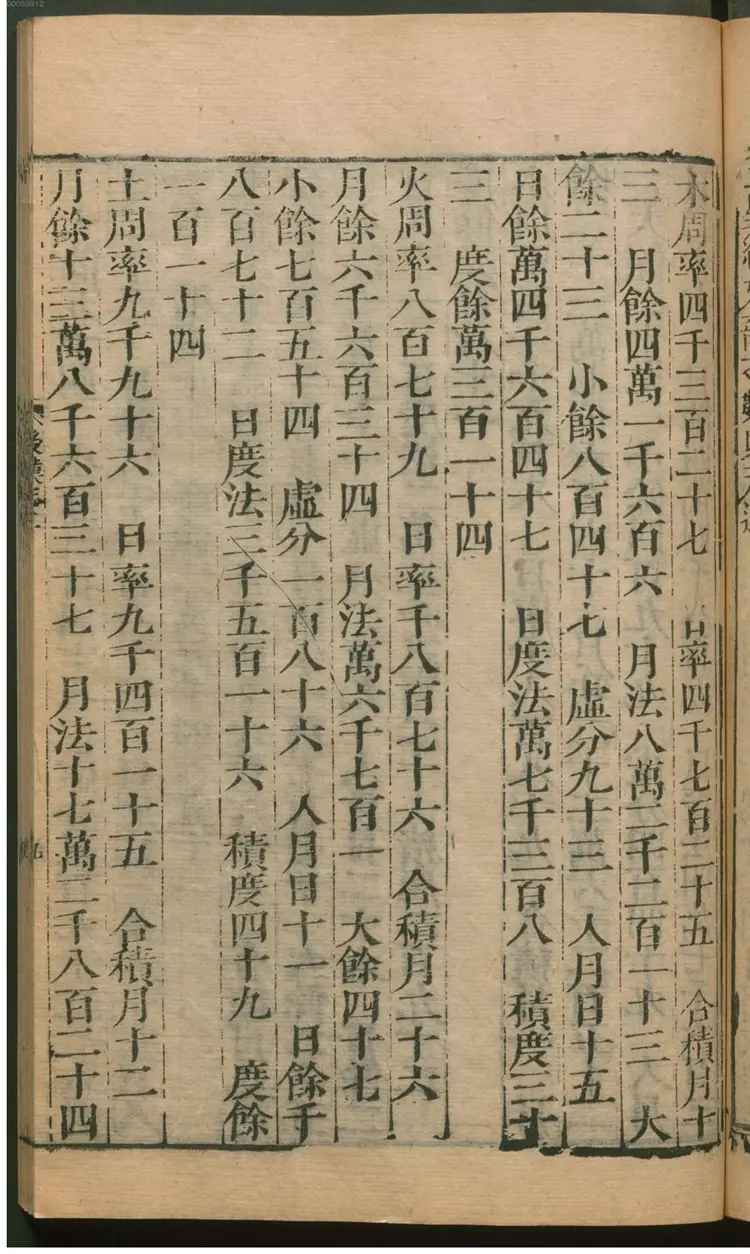 00059912
木周率四千三百二十七 日率四千七百二十五 合積月十
三 月餘四萬一千六百六 月法八萬二千二百一十三 大
餘二十三 小餘八百四十七 虛分九十三 入月日十五
日餘萬四千六百四十七 日度法萬七千三百八 積度三十
三 度餘萬三百一十四
火周率八百七十九 日率千八百七十六 合積月二十六
月餘六千六百三十四 月法萬六千七百一 大餘四十七
小餘七百五十四 虛分一百八十六 入月日十一 日餘千
八百七十二 日度法三千五百一十六 積度四十九 度餘
一百一十四
土周率九千九十六 日率九千四百一十五 合積月十二
月餘十三萬八千六百三十七 月法十七萬二千八百二十四
九